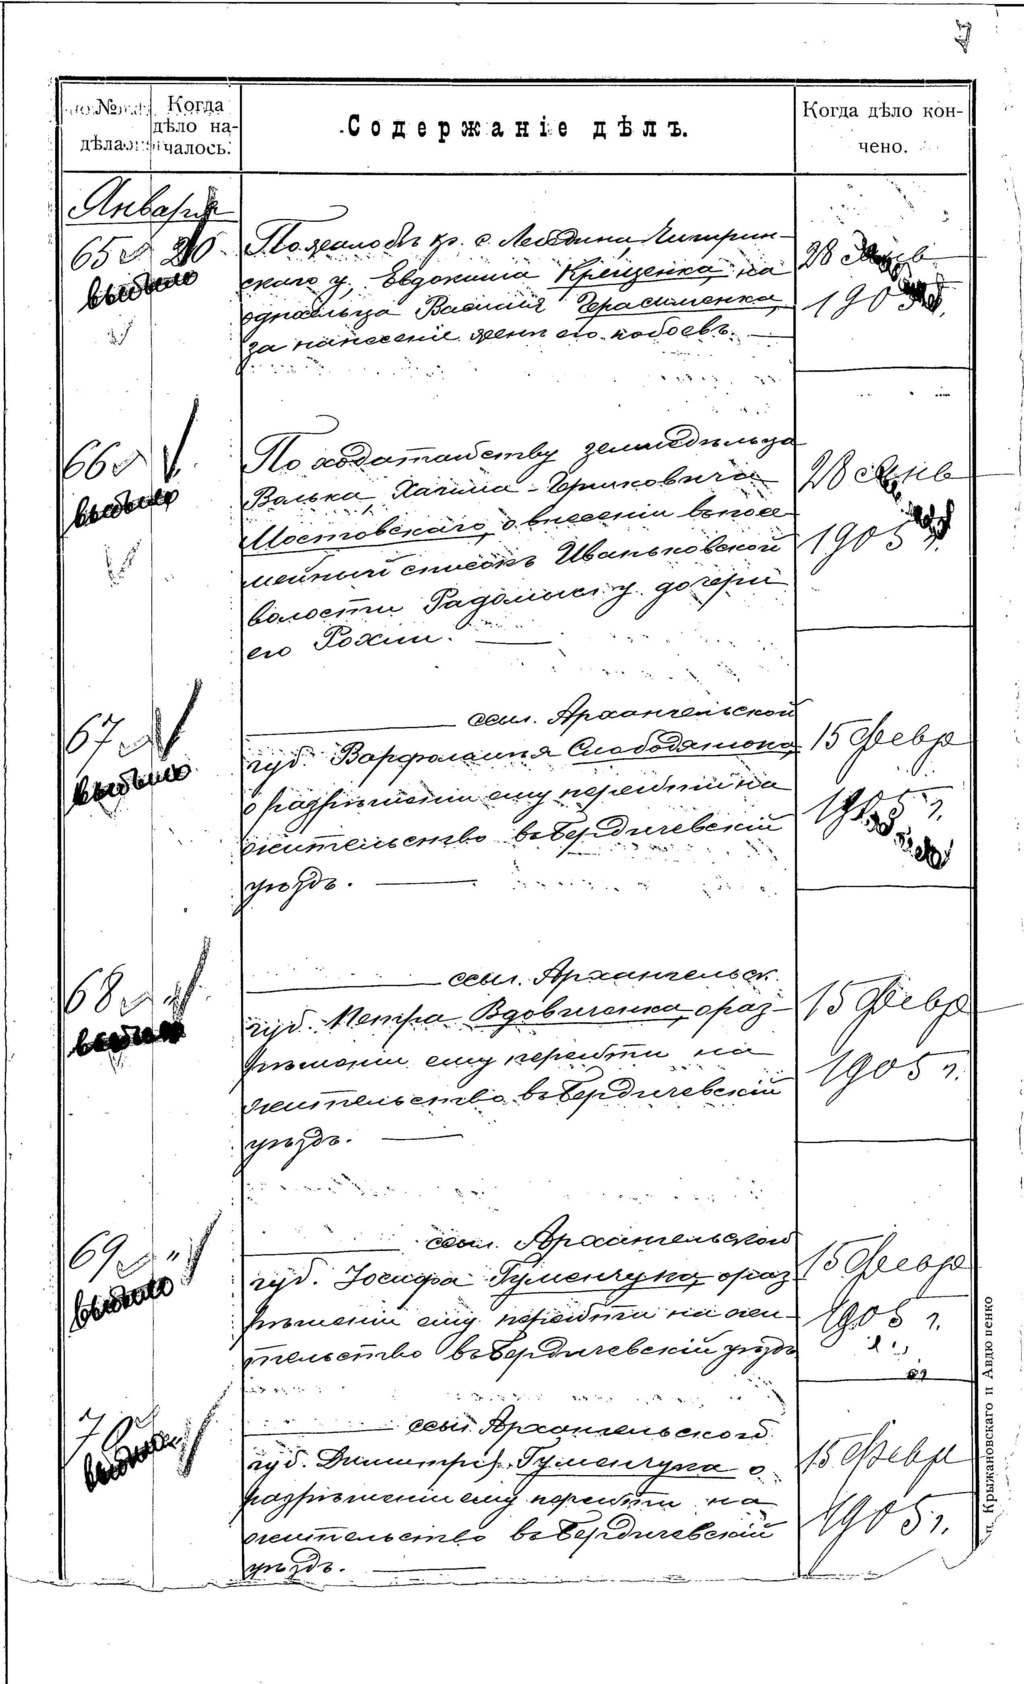 №
дѣла
Когда
дѣло на-
чалось.
Содержаніе дѣлъ.
Когда дѣло кон-
чено.
Января
65 20
выбыло
По жалобѣ кр. с. Лебедина, Чигирин-
скаго у, Евдокима Крещенка, на
односельца Василія Герасименка,
за нанесеніе женѣ его побоевъ.
28 Янв
1905 г.
66
выбыло
По ходатайству земледѣльца
Волька Хаима-Гершковича
Мостовскаго, о внесеніи въ посе-
мейный списокъ Иваньковской
волости Радомысл. у. дочери
его Рохли.
28 Янв
1905 г.
67
выбыло
ссыл. Архангельской
губ. Варфоломея Слободянюка,
о разрѣшеніи ему перейти на
жительство въ Бердичевскій
уѣздъ.
15 Февр
1905 г.
68
выбыло
ссыл. Архангельск.
губ. Петра Вдовиченка, о раз-
рѣшеніи ему перейти на
жительство въ Бердичевскій
уѣздъ.
15 Февр
1905 г.
69 "
выбыло
ссыл. Архангельской
губ. Іосифа Гуменчука, о раз
рѣшеніи ему перейти на жи-
тельство въ Бердичевскій уѣздъ
15 Февр
1905 г.
70
выбыло
ссыл. Архангельской
губ. Димитрія Гуменчука о
разрѣшеніи ему перейти на
жительство въ Бердичевскій
уѣздъ.
15 Февр
1905 г.
Крыжановскаго и Авдюшенко